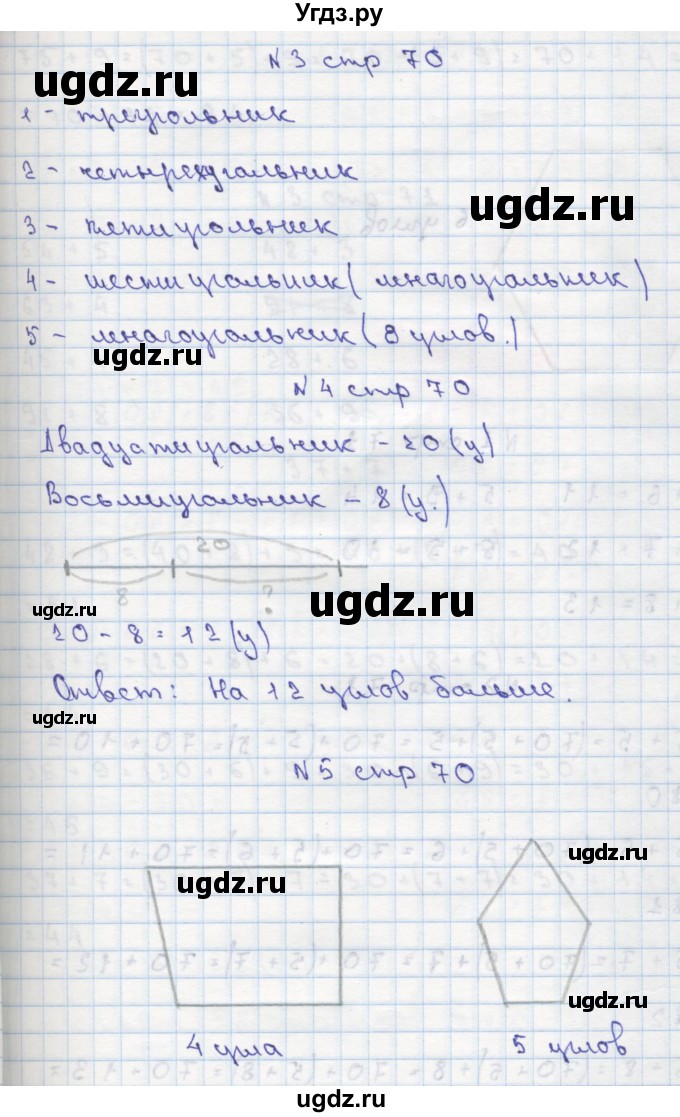 Угдз.ру
N 3 стр 70
ugdz.ru
1 - треугольник
2 - четырехугольник
ugdz.ru
3 - пятиугольник
4 - шестиугольник (многоугольник)
5 - многоугольник (8 углов.)
ugdz.ru
N 4 стр 70
Двадцатиугольник - 20 (у)
Восьмиугольник - 8 (у.)
20
8 ?
ugdz.ru ugdz.ru
20 - 8 = 12 (у)
Ответ: На 12 углов больше.
ugdz.ru
N 5 стр 70
ugdz.ru
ugdz.ru
ugdz.ru
4 угла 5 углов
ugdz.ru